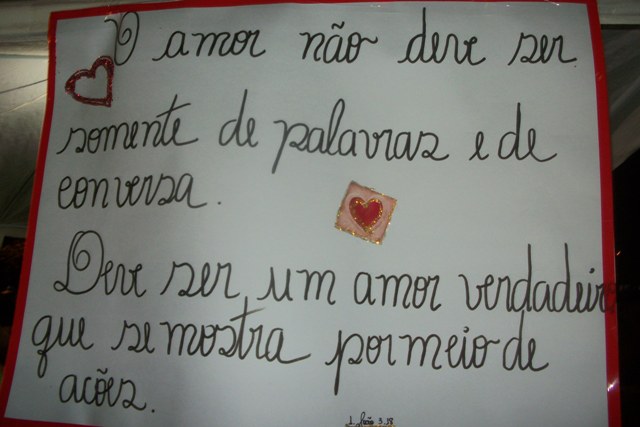 O amor não deve ser
somente de palavras e de
conversa.
Deve ser um amor verdadeiro
que se mostra por meio de
acões.
1 João 3.18